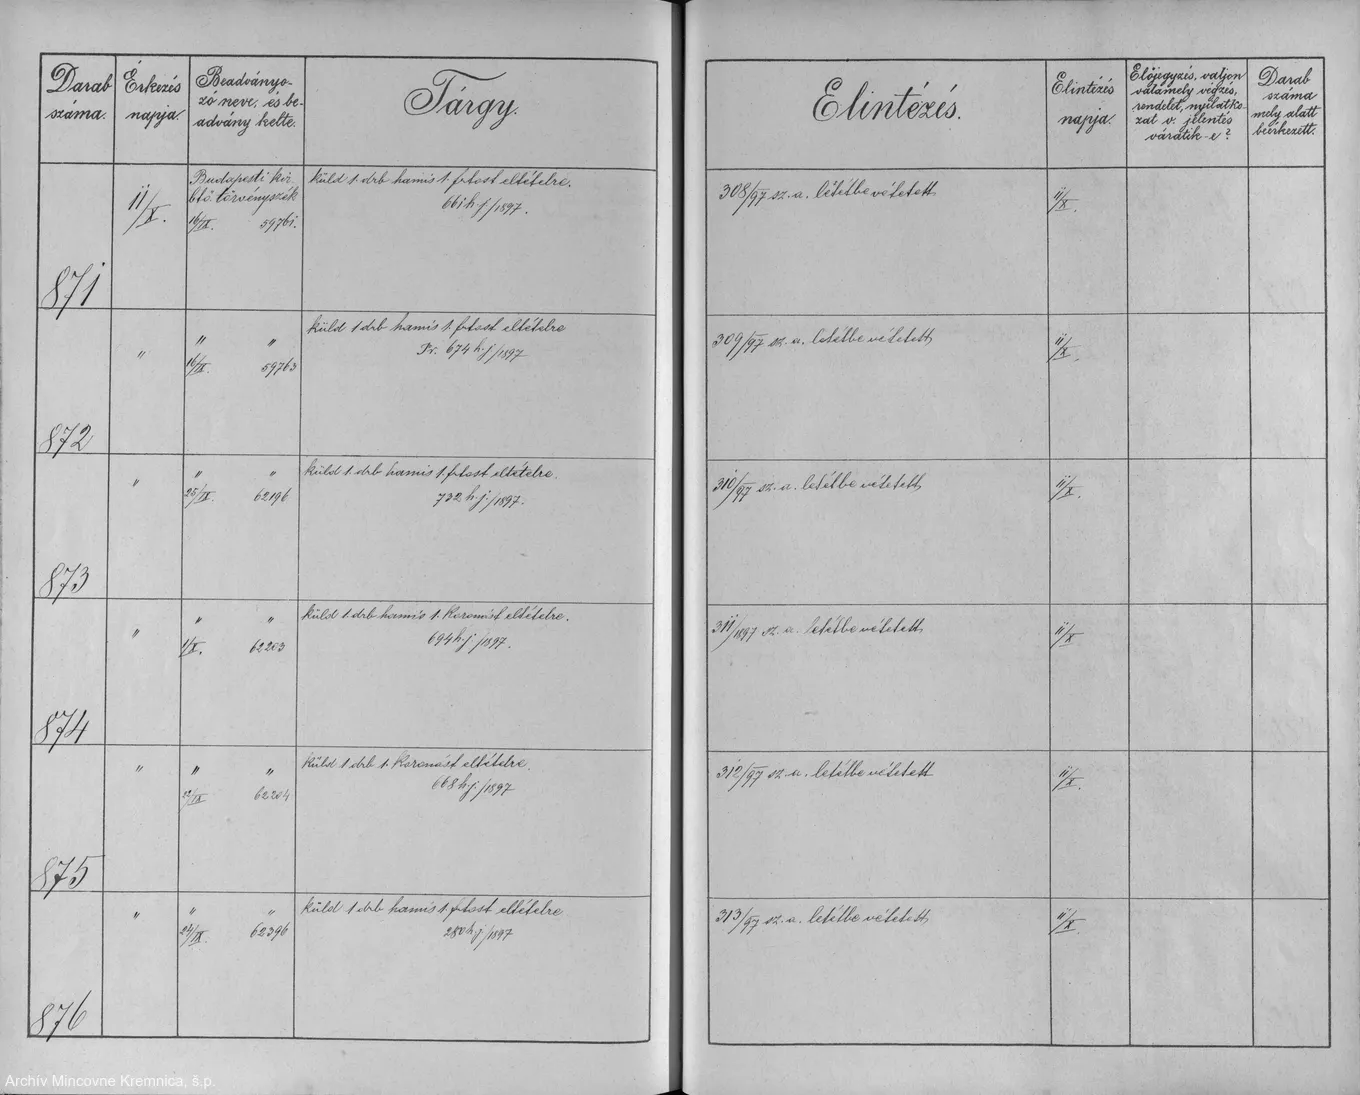 Darab
száma.
Érkezés
napja.
Beadványo-
zó neve, és be-
advány kelte.
Tárgy.
Elintézés.
Elintézés
napja.
Előjegyzés, valjon
valamely végzés,
rendelet, nyilatko-
zat v. jelentés
váratik-e?
Darab
száma
mely alatt
beérkezett.
871
11/X.
Budapesti kir.
btő. törvényszék
16/IX. 59761.
küld 1 drb hamis 1 frtost eltételre.
661 h.j./1897.
308/97 sz. a. letétbe vétetett
11/X.
872
"
" "
16/IX. 59763
küld 1 drb hamis 1 frtost eltételre
Pr. 674 h.j./1897
309/97 sz. a. letétbe vétetett
11/X.
873
"
" "
25/IX. 62196
küld 1 drb hamis 1 frtost eltételre.
732 h.j./1897.
310/97 sz. a. letétbe vétetett
11/X.
874
"
" "
1/X. 62203
küld 1 drb hamis 1 Koronást eltételre.
694 h.j./1897.
311/1897 sz. a. letétbe vétetett
11/X
875
"
" "
22/IX 62204
küld 1 drb 1 Koronást eltételre.
668 h.j./1897
312/97 sz. a. letétbe vétetett
11/X.
876
"
" "
24/IX. 62396
küld 1 drb hamis 1 frtost eltételre
280 h.j./1897
313/97 sz. a. letétbe vétetett
11/X.
Archív Mincovne Kremnica, š.p.